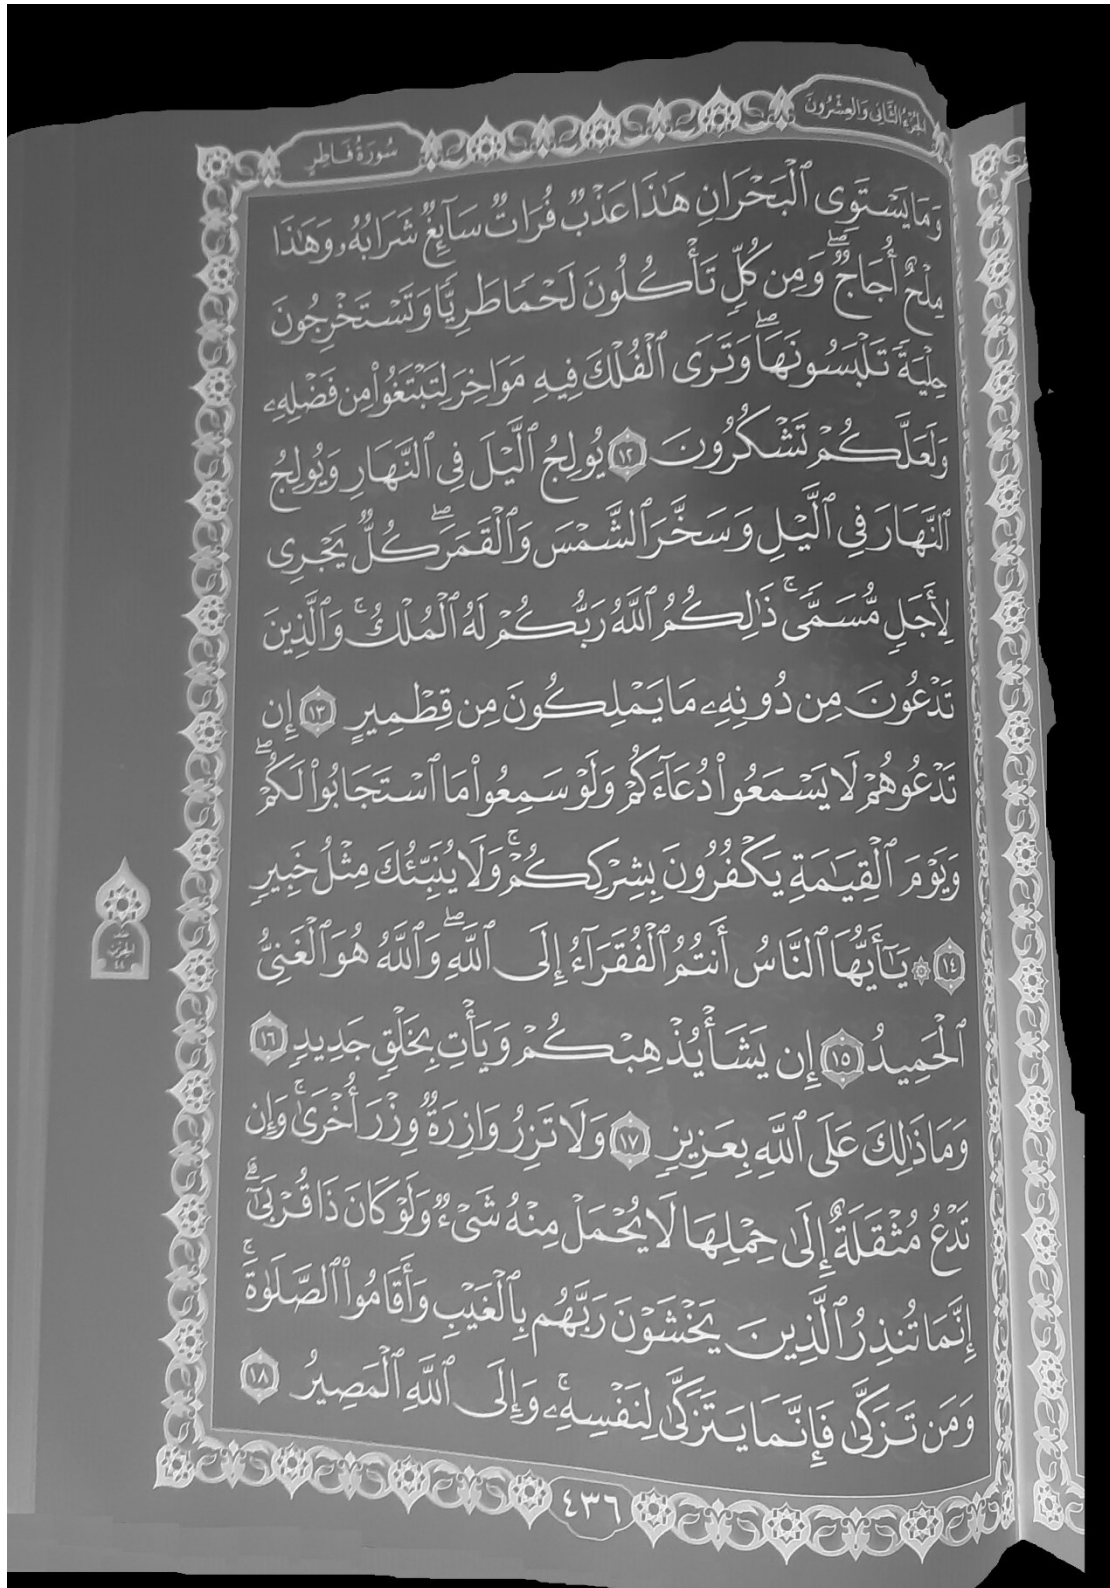 الجزء الثاني والعشرون
سورة فاطر
وَمَا يَسْتَوِى ٱلْبَحْرَانِ هَٰذَا عَذْبٌ فُرَاتٌ سَآئِغٌ شَرَابُهُۥ وَهَٰذَا
مِلْحٌ أُجَاجٌ ۖ وَمِن كُلٍّ تَأْكُلُونَ لَحْمًا طَرِيًّا وَتَسْتَخْرِجُونَ
حِلْيَةً تَلْبَسُونَهَا ۖ وَتَرَى ٱلْفُلْكَ فِيهِ مَوَاخِرَ لِتَبْتَغُوا۟ مِن فَضْلِهِۦ
وَلَعَلَّكُمْ تَشْكُرُونَ ١٢ يُولِجُ ٱلَّيْلَ فِى ٱلنَّهَارِ وَيُولِجُ
ٱلنَّهَارَ فِى ٱلَّيْلِ وَسَخَّرَ ٱلشَّمْسَ وَٱلْقَمَرَ ۖ كُلٌّ يَجْرِى
لِأَجَلٍ مُّسَمًّى ۚ ذَٰلِكُمُ ٱللَّهُ رَبُّكُمْ لَهُ ٱلْمُلْكُ ۚ وَٱلَّذِينَ
تَدْعُونَ مِن دُونِهِۦ مَا يَمْلِكُونَ مِن قِطْمِيرٍ ١٣ إِن
تَدْعُوهُمْ لَا يَسْمَعُوا۟ دُعَآءَكُمْ وَلَوْ سَمِعُوا۟ مَا ٱسْتَجَابُوا۟ لَكُمْ ۖ
وَيَوْمَ ٱلْقِيَٰمَةِ يَكْفُرُونَ بِشِرْكِكُمْ ۚ وَلَا يُنَبِّئُكَ مِثْلُ خَبِيرٍ
١٤ ۞ يَٰٓأَيُّهَا ٱلنَّاسُ أَنتُمُ ٱلْفُقَرَآءُ إِلَى ٱللَّهِ ۖ وَٱللَّهُ هُوَ ٱلْغَنِىُّ
ٱلْحَمِيدُ ١٥ إِن يَشَأْ يُذْهِبْكُمْ وَيَأْتِ بِخَلْقٍ جَدِيدٍ ١٦
وَمَا ذَٰلِكَ عَلَى ٱللَّهِ بِعَزِيزٍ ١٧ وَلَا تَزِرُ وَازِرَةٌ وِزْرَ أُخْرَىٰ ۚ وَإِن
تَدْعُ مُثْقَلَةٌ إِلَىٰ حِمْلِهَا لَا يُحْمَلْ مِنْهُ شَىْءٌ وَلَوْ كَانَ ذَا قُرْبَىٰٓ ۗ
إِنَّمَا تُنذِرُ ٱلَّذِينَ يَخْشَوْنَ رَبَّهُم بِٱلْغَيْبِ وَأَقَامُوا۟ ٱلصَّلَوٰةَ ۚ
وَمَن تَزَكَّىٰ فَإِنَّمَا يَتَزَكَّىٰ لِنَفْسِهِۦ ۚ وَإِلَى ٱللَّهِ ٱلْمَصِيرُ ١٨
٤٣٦
الحزب
٤٤